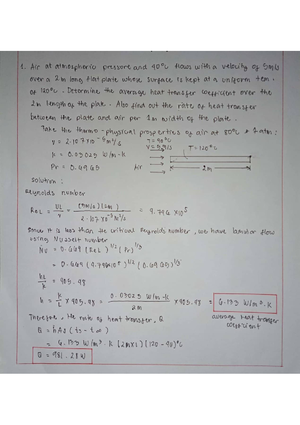 1. Air at atmospheric pressure and 40°C flows with a velocity of 5m/s
over a 2m long flat plate whose surface is kept at a uniform tem.
of 120°C. Determine the average heat transfer coefficient over the
2m length of the plate. Also find out the rate of heat transfer
between the plate and air per 1m width of the plate.
Take the thermo-physical properties of air at 80°C & 1 atm:
v = 2.107 x 10⁻⁵ m²/s
T = 40°C
V = 5m/s
T = 120°C
k = 0.03025 W/m-k
Pr = 0.6965
Air
2m
solution:
Reynolds number
ReL = UL/v = (5m/s)(2m) / 2.107 x10⁻⁵ m²/s = 4.746 x10⁵
Since it is less than the critical reynolds number, we have laminar flow
using Nusselt number
Nu = 0.664 (ReL)^1/2 (Pr)^1/3
= 0.664 (4.746x10⁵)^1/2 (0.6965)^1/3
hL/k = 405.48
h = k/L x 405.48 = 0.03025 W/m-k / 2m x 405.48 = 6.133 W/m².k
average heat transfer
coefficient
Therefore, the rate of heat transfer, Q
Q = hAs (Ts - T∞)
= 6.133 W/m².k (2mx1)(120-40)°C
Q = 981.28 W